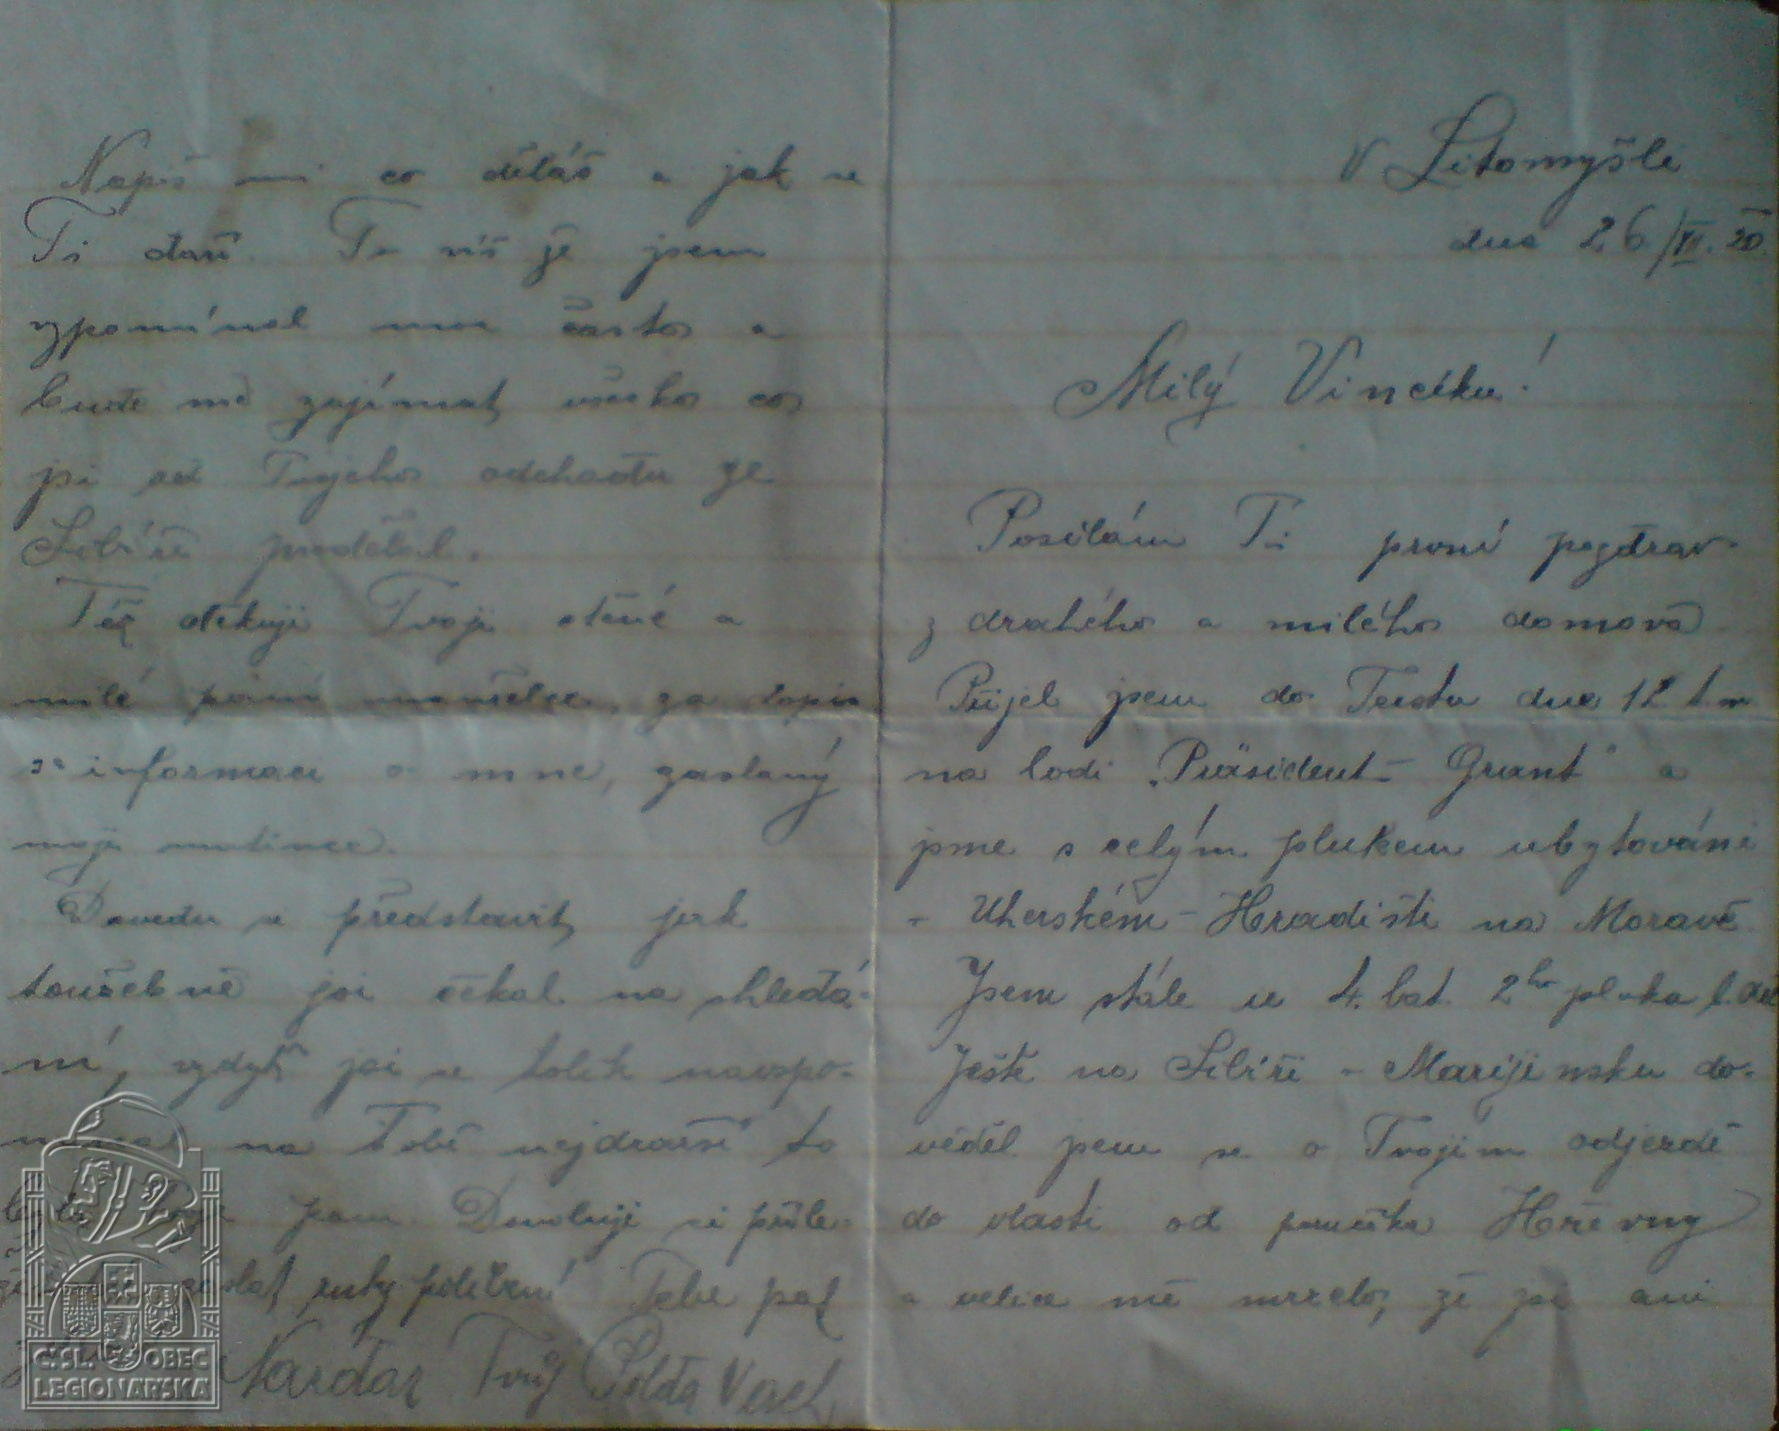 V Litomyšli
dne 26/XII. 20.
Milý Vincíku!
Posílám Ti první pozdrav
z drahého a milého domova
Přijel jsem do Terstu dne 12 t.m.
na lodi „Präsident-Grant" a
jsme s celým plukem ubytováni
v Uherském-Hradišti na Moravě
Jsem stále u 4. bat. 2ho pluku
Ještě na Sibiři v Mariji nsku do-
věděl jsem se o Tvojím odjezdě
do vlasti od poručíka
a velice mě mrzelo, že jsi ani
Napiš mi co děláš a jak se
Ti daří. Ty víš že jsem
vzpomínal moc často a
bude mě zajímat všecko co
jsi od Tvojeho odchodu ze
Sibiře prodělal.
Též děkuji Tvoji ctěné a
milé paní manželce, za dopis
s informací o mne, zaslaný
moji matince.
Dovedu si představit, jak
toužebně jsi čekal na shledá-
ní, vzdyť jsi se tolik navzpo-
na Tobě nejdražší to
paní. Dovoluji si příle-
ruky políbení Tebe pak
Nazdar Tvůj Polda
Č.SL. OBEC
LEGIONÁŘSKÁ